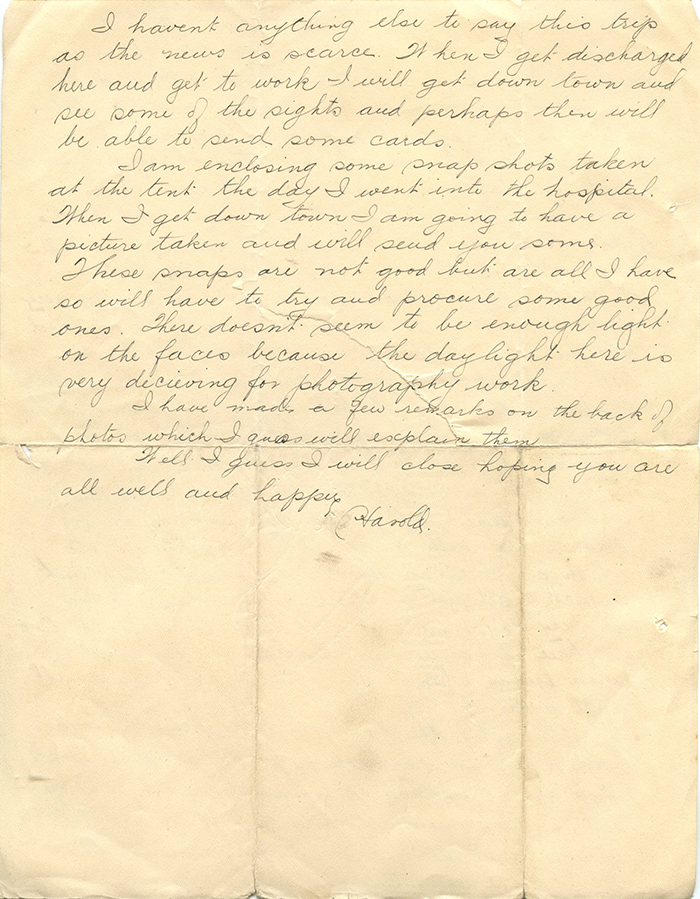 I havent anything else to say this trip
as the news is scarce. When I get discharged
here and get to work I will get down town and
see some of the sights and perhaps then will
be able to send some cards.
I am enclosing some snap shots taken
at the tent the day I went into the hospital.
When I get down town I am going to have a
picture taken and will send you some.
These snaps are not good but are all I have
so will have to try and procure some good
ones. There doesn't seem to be enough light
on the faces because the daylight here is
very decieving for photography work.
I have made a few remarks on the back of
photos which I guess will explain them
Well I guess I will close hoping you are
all well and happy
Harold.